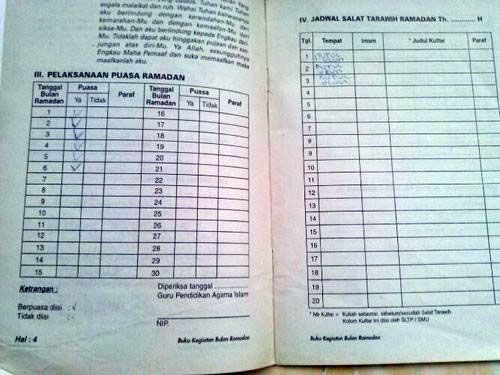 segala malaikat dan ruh. Wahai Tuhan bahwasanya
aku berlindung dengan kerendahan-Mu dari
kemarahan-Mu dan dengan kemaafan-Mu dari
siksa-Mu. Dan aku berlindung kepada Engkau dari-
Mu. Tidaklah dapat aku hinggakan pujaan dan san-
jungan atas diri-Mu. Ya Allah, sesungguhnya
Engkau Maha Pemaaf dan suka memaafkan maka
maafkanlah aku.
III. PELAKSANAAN PUASA RAMADAN
Tanggal Bulan Ramadan Puasa Ya Tidak Paraf Tanggal Bulan Ramadan Puasa Ya Tidak Paraf
1 ✓ 16
2 ✓ 17
3 ✓ 18
4 ✓ 19
5 ✓ 20
6 ✓ 21
7 22
8 23
9 24
10 25
11 26
12 27
13 28
14 29
15 30
Keterangan :
Berpuasa diisi : √
Tidak diisi : -
Diperiksa tanggal ............
Guru Pendidikan Agama Islam
NIP.
Hal : 4
Buku Kegiatan Bulan Ramadan
IV. JADWAL SALAT TARAWIH RAMADAN Th. ........... H
Tgl. Tempat Imam * Judul Kultar Paraf
1
2
3
4
5
6
7
8
9
10
11
12
13
14
15
16
17
18
19
20
* Nb Kultar = Kuliah sebentar, sebelum/sesudah Salat Tarawih
Kolom Kultar ini diisi oleh SLTP / SMU
Buku Kegiatan Bulan Ramadan